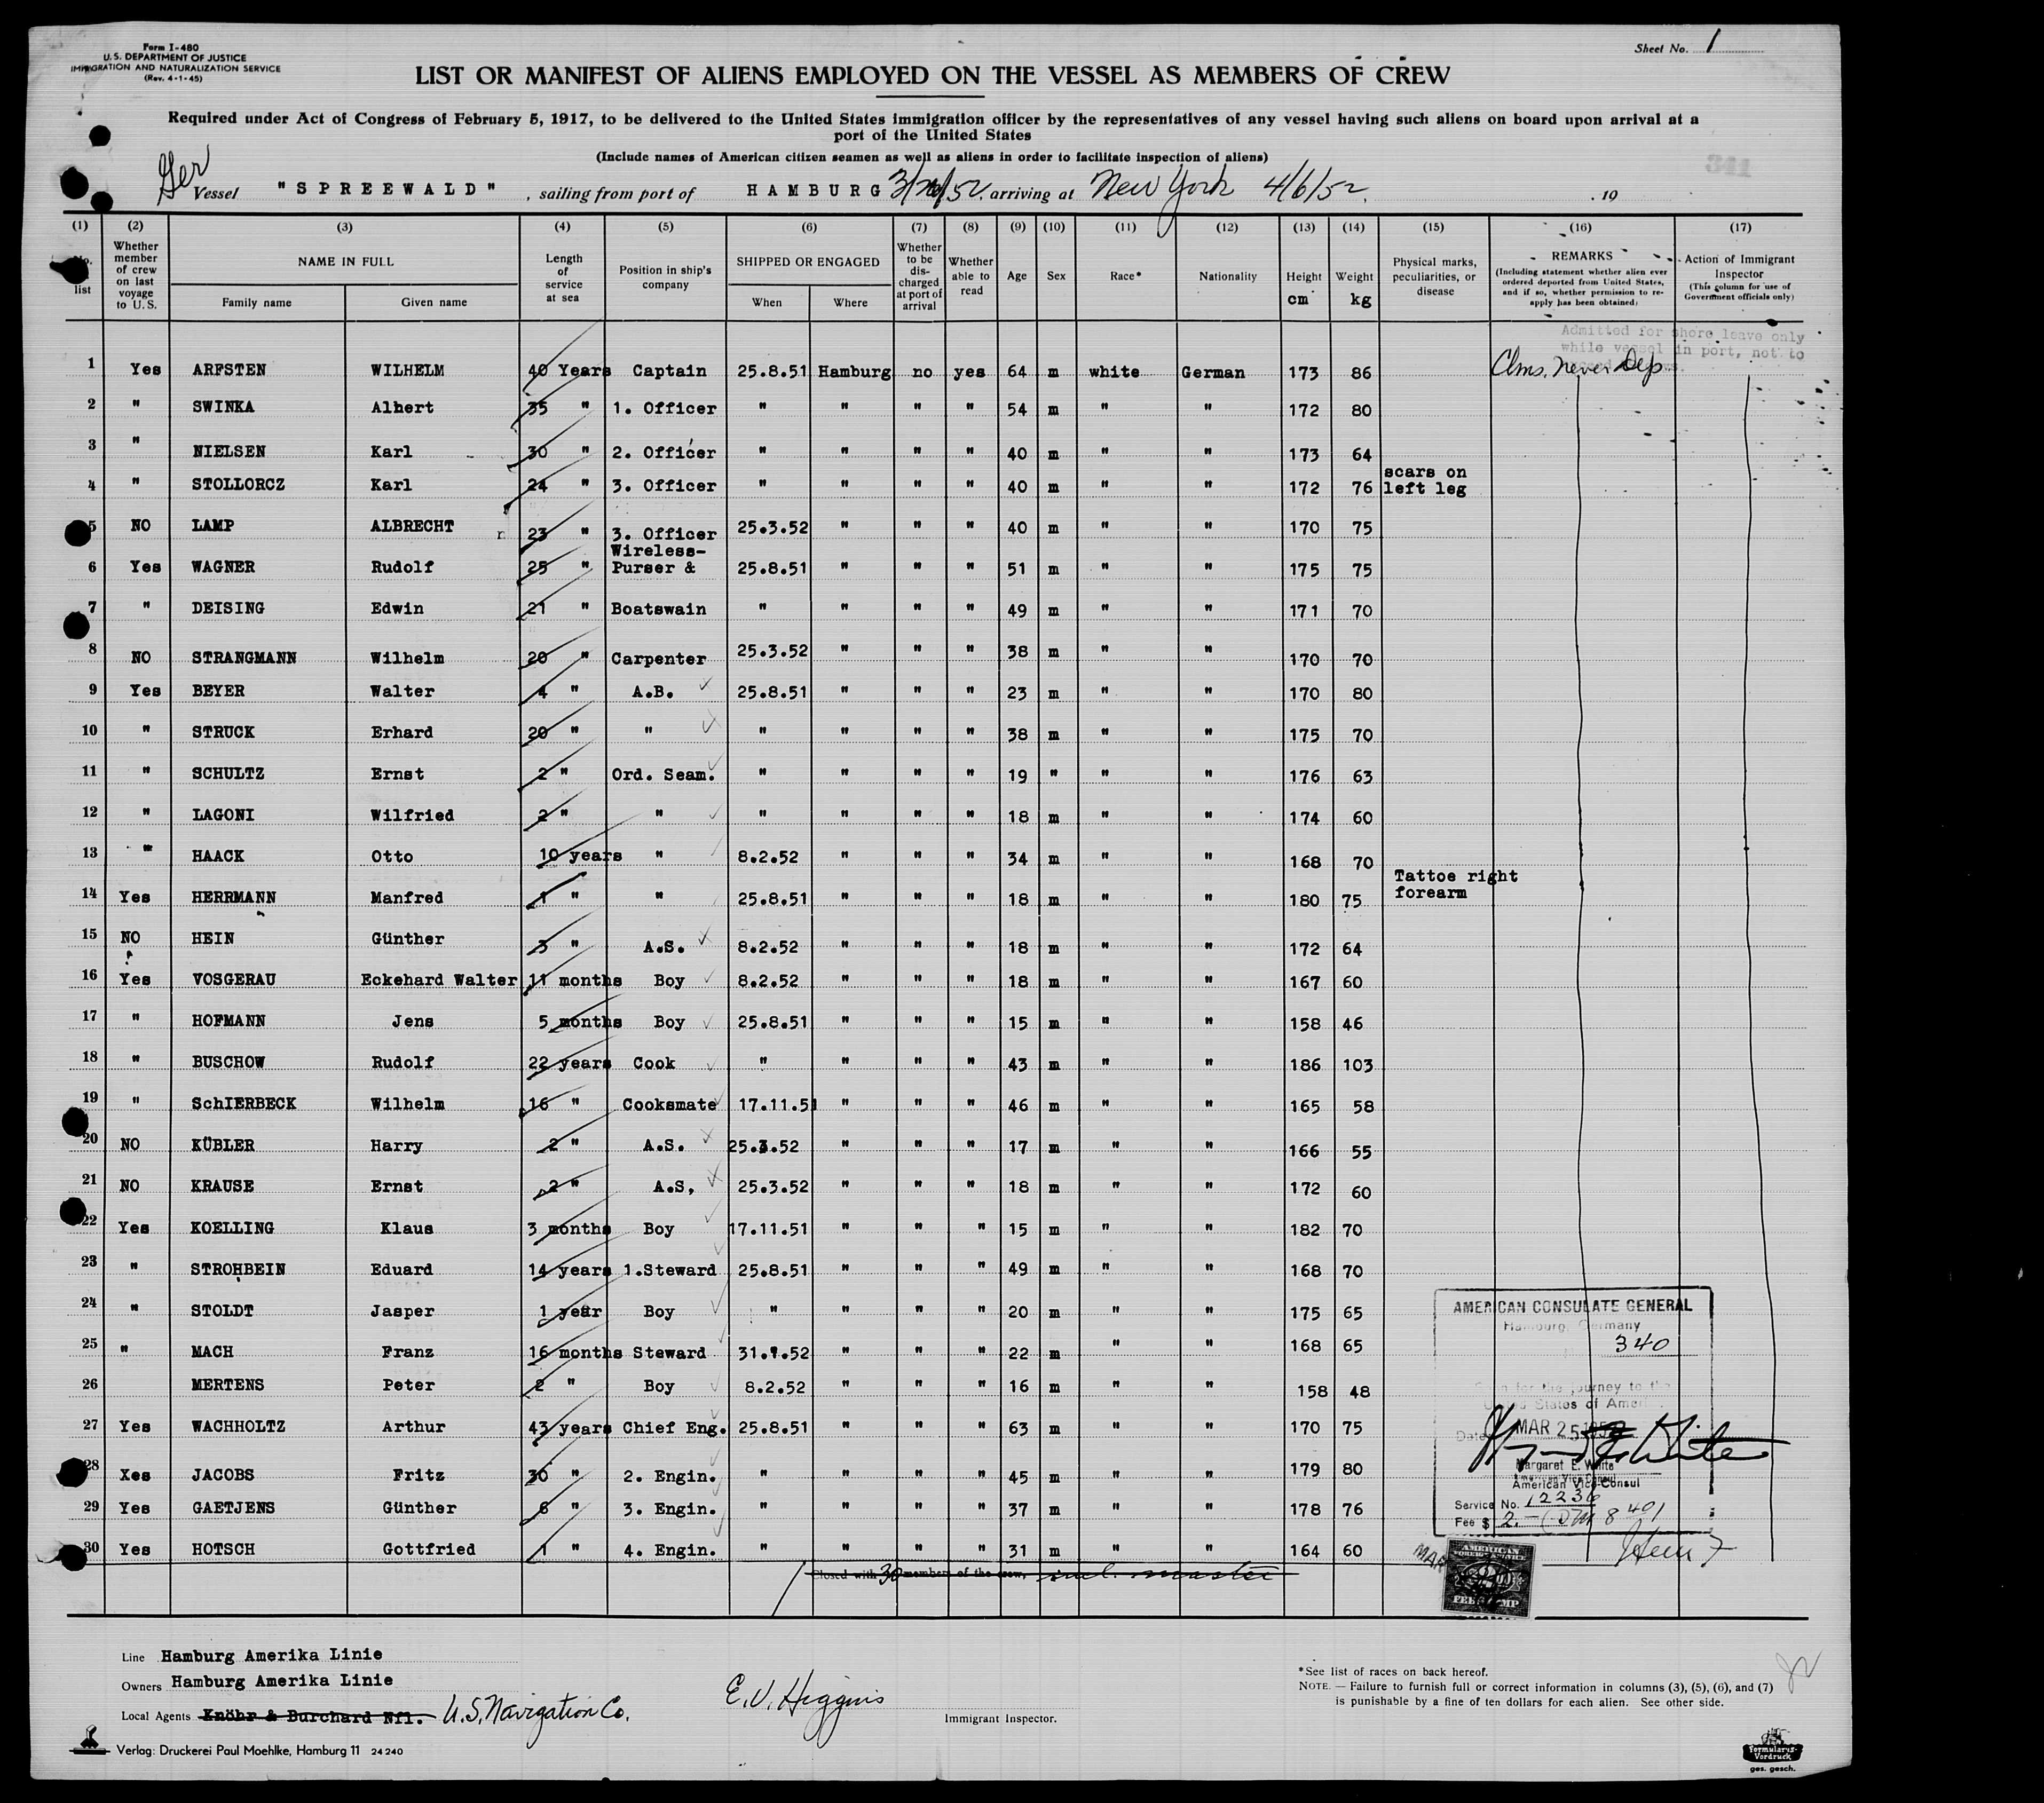 Form I-480
U.S. DEPARTMENT OF JUSTICE
IMMIGRATION AND NATURALIZATION SERVICE
(Rev. 4-1-45)
Sheet No. 1
LIST OR MANIFEST OF ALIENS EMPLOYED ON THE VESSEL AS MEMBERS OF CREW
Required under Act of Congress of February 5, 1917, to be delivered to the United States immigration officer by the representatives of any vessel having such aliens on board upon arrival at a
port of the United States
(Include names of American citizen seamen as well as aliens in order to facilitate inspection of aliens)
341
Ger
Vessel "SPREEWALD", sailing from port of HAMBURG 3/ /52, arriving at New York 4/6/52, 19
(1) (2) (3) (4) (5) (6) (7) (8) (9) (10) (11) (12) (13) (14) (15) (16) (17)
No. list
Whether member of crew on last voyage to U.S.
NAME IN FULL
Family name Given name
Length of service at sea
Position in ship's company
SHIPPED OR ENGAGED
When Where
Whether to be discharged at port of arrival
Whether able to read
Age Sex Race* Nationality
Height cm
Weight kg
Physical marks, peculiarities, or disease
REMARKS
(Including statement whether alien ever ordered deported from United States, and if so, whether permission to reapply has been obtained)
Action of Immigrant Inspector
(This column for use of Government officials only)
Admitted for shore leave only
while vessel in port, not to
1 Yes ARFSTEN WILHELM 40 Years Captain 25.8.51 Hamburg no yes 64 m white German 173 86 Clms. never Dep
2 " SWINKA Albert 35 " 1. Officer " " " " 54 m " " 172 80
3 " NIELSEN Karl 30 " 2. Officer " " " " 40 m " " 173 64
4 " STOLLORCZ Karl 24 " 3. Officer " " " " 40 m " " 172 76 scars on left leg
5 NO LAMP ALBRECHT 23 " 3. Officer 25.3.52 " " " 40 m " " 170 75
6 Yes WAGNER Rudolf 25 " Wireless- Purser & 25.8.51 " " " 51 m " " 175 75
7 " DEISING Edwin 21 " Boatswain " " " " 49 m " " 171 70
8 NO STRANGMANN Wilhelm 20 " Carpenter 25.3.52 " " " 38 m " " 170 70
9 Yes BEYER Walter 4 " A.B. 25.8.51 " " " 23 m " " 170 80
10 " STRUCK Erhard 20 " " " " " " 38 m " " 175 70
11 " SCHULTZ Ernst 2 " Ord. Seam. " " " " 19 " " " 176 63
12 " LAGONI Wilfried 2 " " " " " " 18 m " " 174 60
13 " HAACK Otto 10 years " 8.2.52 " " " 34 m " " 168 70
14 Yes HERRMANN Manfred 1 " " 25.8.51 " " " 18 m " " 180 75 Tattoe right forearm
15 NO HEIN Günther 3 " A.S. 8.2.52 " " " 18 m " " 172 64
16 Yes VOSGERAU Eckehard Walter 11 months Boy 8.2.52 " " " 18 m " " 167 60
17 " HOFMANN Jens 5 months Boy 25.8.51 " " " 15 m " " 158 46
18 " BUSCHOW Rudolf 22 years Cook " " " " 43 m " " 186 103
19 " SchIERBECK Wilhelm 16 " Cooksmate 17.11.51 " " " 46 m " " 165 58
20 NO KÜBLER Harry 2 " A.S. 25.3.52 " " " 17 m " " 166 55
21 NO KRAUSE Ernst 2 " A.S, 25.3.52 " " " 18 m " " 172 60
22 Yes KOELLING Klaus 3 months Boy 17.11.51 " " " 15 m " " 182 70
23 " STROHBEIN Eduard 14 years 1.Steward 25.8.51 " " " 49 m " " 168 70
24 " STOLDT Jasper 1 year Boy " " " " 20 m " " 175 65
25 " MACH Franz 16 months Steward 31.1.52 " " " 22 m " " 168 65
26 MERTENS Peter 2 " Boy 8.2.52 " " " 16 m " " 158 48
27 Yes WACHHOLTZ Arthur 43 years Chief Eng. 25.8.51 " " " 63 m " " 170 75
28 Xes JACOBS Fritz 30 " 2. Engin. " " " " 45 m " " 179 80
29 Yes GAETJENS Günther 6 " 3. Engin. " " " " 37 m " " 178 76
30 Yes HOTSCH Gottfried 1 " 4. Engin. " " " " 31 m " " 164 60
Closed with 30 members of the crew, incl. master
AMERICAN CONSULATE GENERAL
Hamburg, Germany
340
Seen for the journey to the
United States of America
Date MAR 25 1952
Margaret E. White
American Vice-Consul
Service No. 12236
Fee $ 2.- (DM 8 40)
MAR
AMERICAN
FOREIGN SERVICE
FEE STAMP
Line Hamburg Amerika Linie
Owners Hamburg Amerika Linie
Local Agents Knöhr & Burchard Nfl. U.S. Navigation Co.
E.V. Higgins
Immigrant Inspector.
*See list of races on back hereof.
NOTE. — Failure to furnish full or correct information in columns (3), (5), (6), and (7)
is punishable by a fine of ten dollars for each alien. See other side.
Verlag: Druckerei Paul Moehlke, Hamburg 11 24240
Formularus-
Vordruck
ges. gesch.